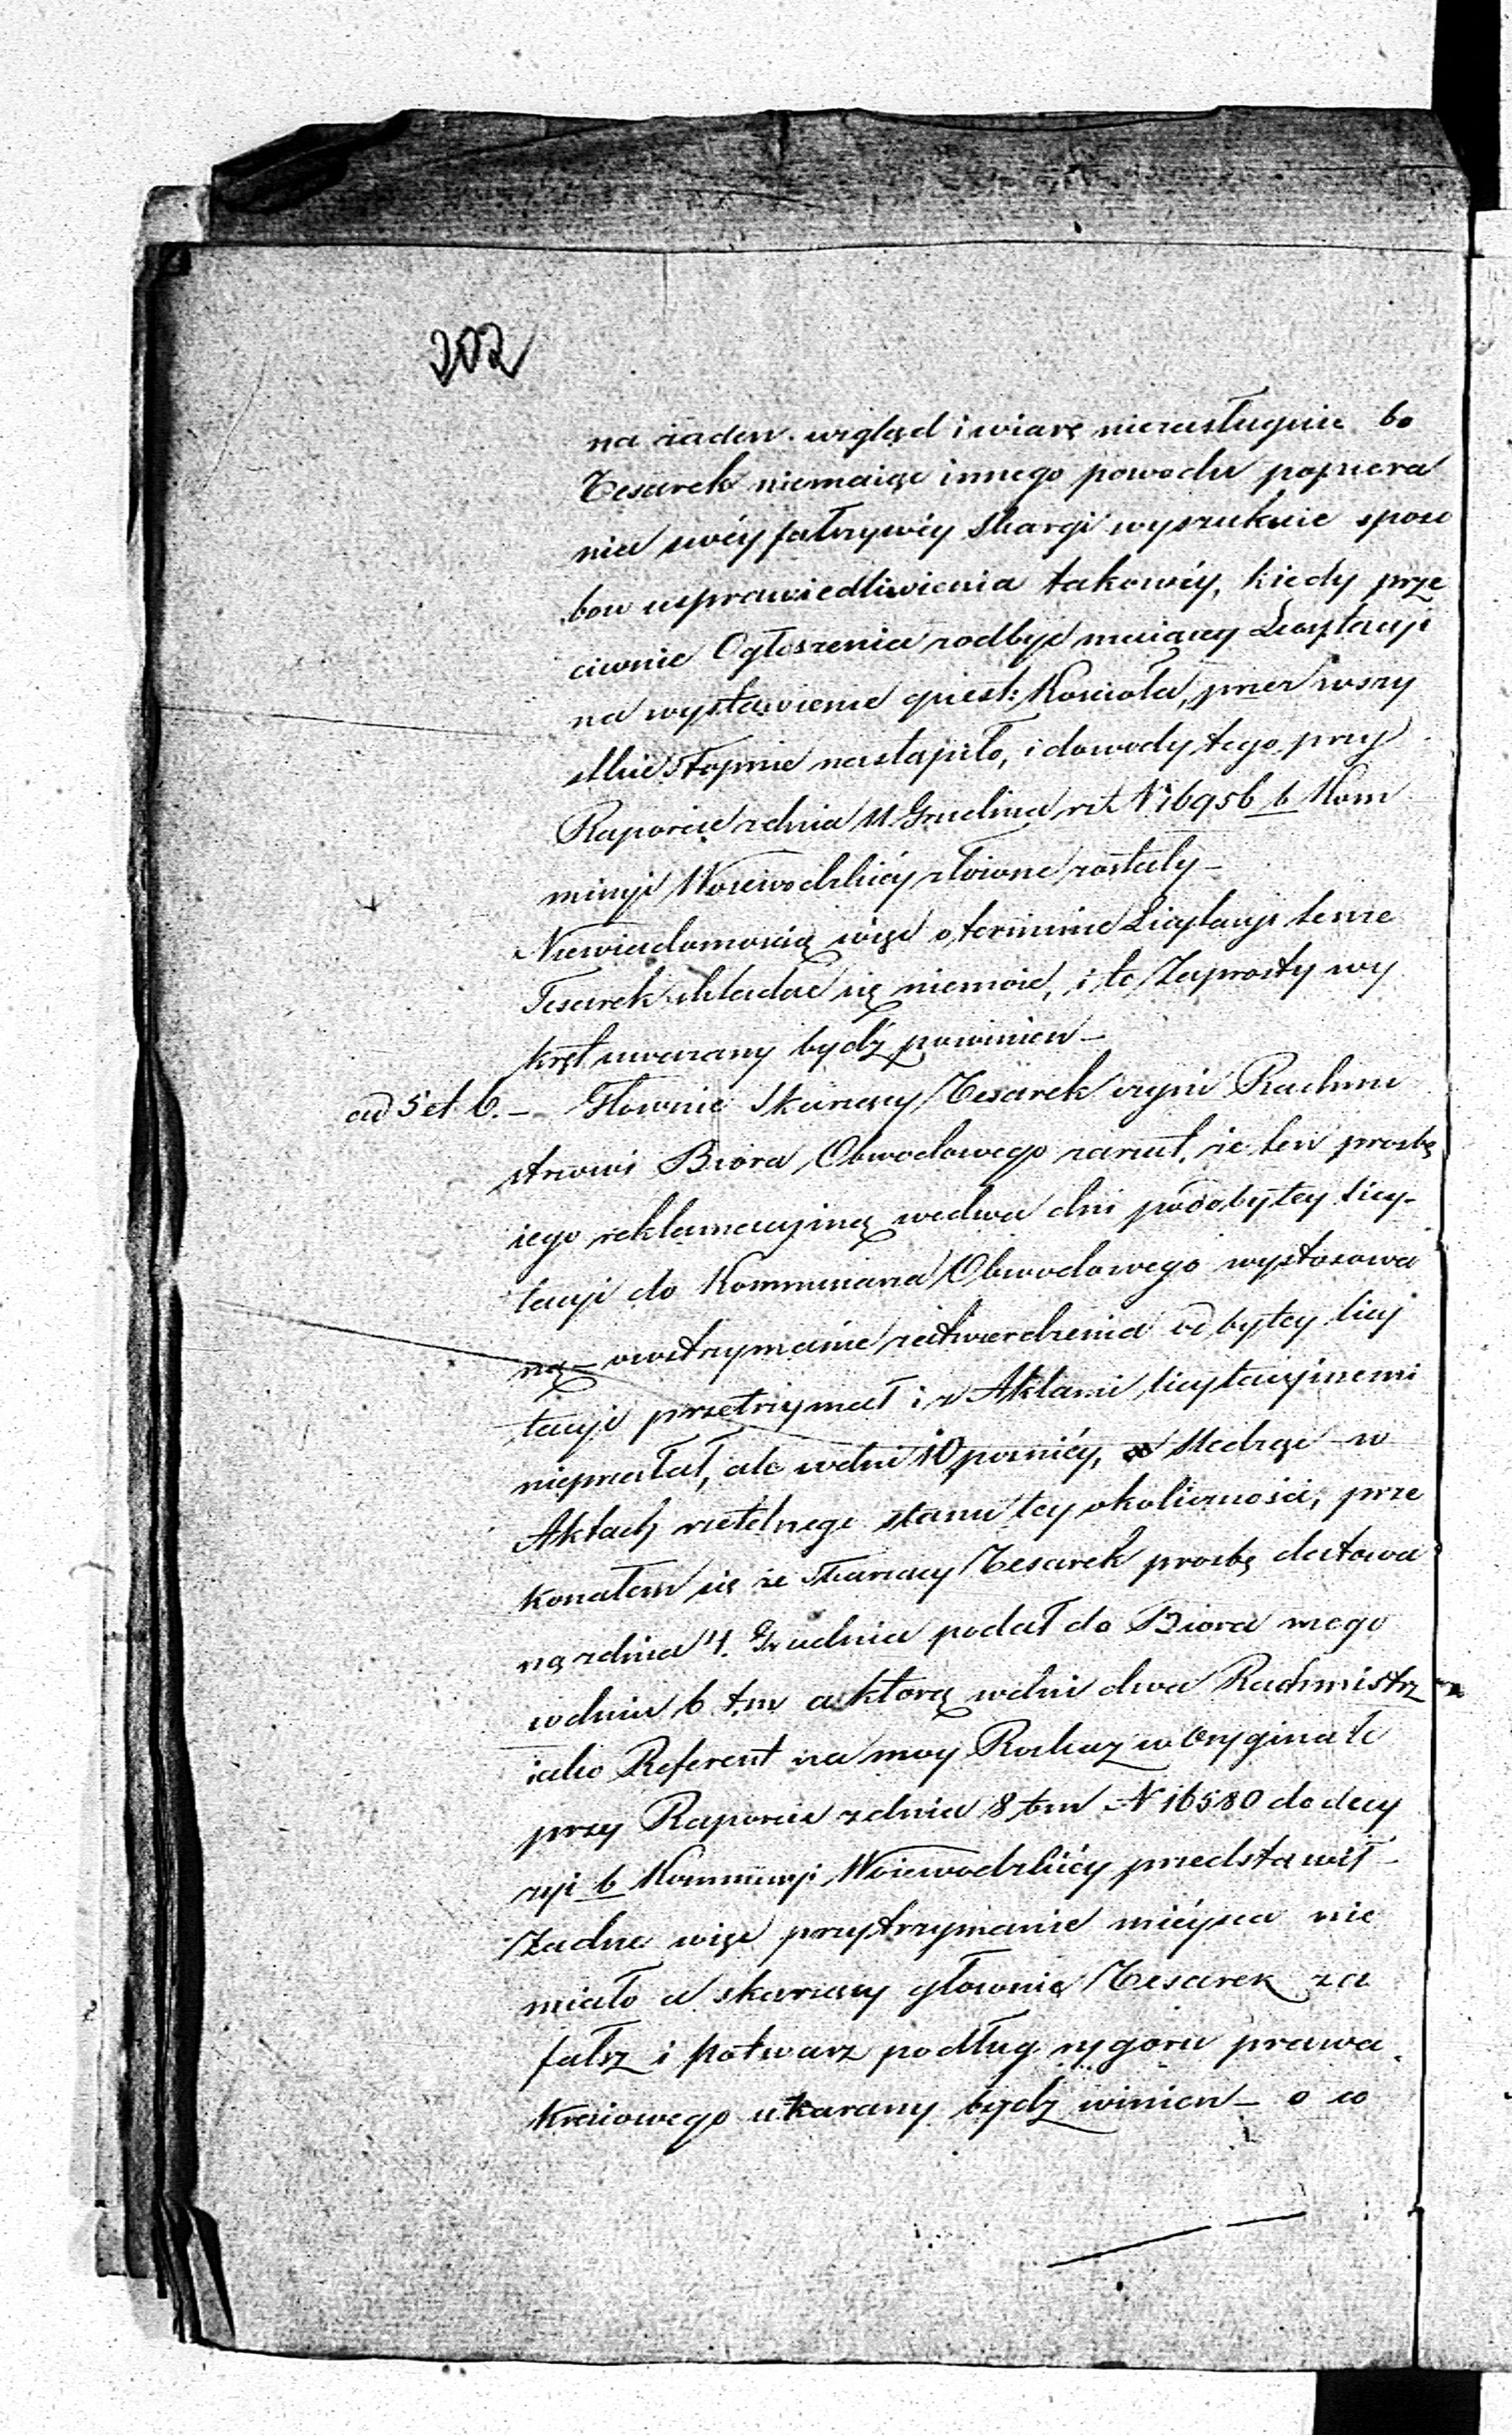 202
na żaden wzgląd i wiarę niezasługuie bo
Tesarek niemaiąc innego powodu popiera
nia swéy fałszywéy Skargi wyszukuie sposo
bow usprawiedliwienia takowéy, kiedy prze
ciwnie Ogłoszenia zodbyć maiącey Licytacyi
na wystawienie quest: Kościoła, przez wszy
stkie stopnie nastąpiło, i dowody tego przy
Raporcie z dnia 11 Grudnia rz. N 16956 b Kom
missyi Woiewodzkiéy złożone zostały –
Niewiadomością więc o terminie Licytacyi tenże
Tesarek składać się niemoże, i to Zaprosty wy
kręt uważany bydź powinien –
ad 5 et 6. – Głownie Skarżący Tesarek czyni Rachmi
strzowi Biora Obwodowego zarzut, że ten prośbę
iego reklamacyiną wedwa dni poodbytey licy-
tacyi do Kommissarza Obwodowego wystosowa
ną – owstrzymanie zatwierdzenia odbytey licy
tacyi przetrzymał i z Aktami licytacyinemi
nieprzesłał, ale wdni 10 pozniéy, Sledząc w
Aktach rzetelnego stanu tey okoliczności, prze
konałem się że Skarzący Tesarek prosbę datowa
ną z dnia 4. Grudnia podał do Biora mego
w dniu 6 t.m a ktorą wdni dwa Rachmistrz
iako Referent na moy Rozkaz w Oryginale
przy Raporcie z dnia 8 tm N 16580 do decy
zyi b Kommissyi Woiewodzkiéy przedstawił –
Zadne więc przytrzymanie mieysca nie
miało a skarzący głownie Tesarek za
fałsz i potwarz podług rygoru prawa
Kraiowego ukarany bydź winien – o co